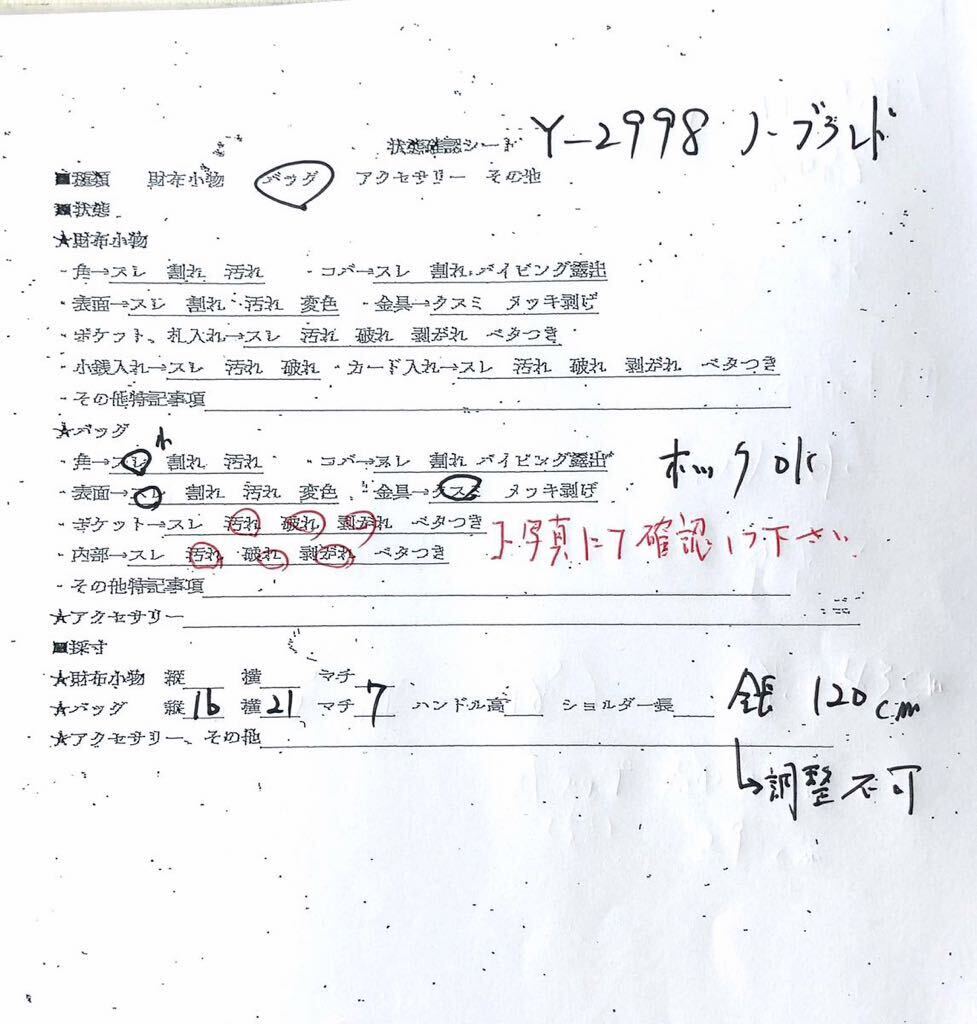 状態確認シート Y-2998 ノーブランド
■種類 財布小物 バッグ アクセサリー その他
■状態
★財布小物
・角→スレ 割れ 汚れ ・コバ→スレ 割れ パイピング露出
・表面→スレ 割れ 汚れ 変色 ・金具→クスミ メッキ剥げ
・ポケット、札入れ→スレ 汚れ 破れ 剥がれ ベタつき
・小銭入れ→スレ 汚れ 破れ ・カード入れ→スレ 汚れ 破れ 剥がれ ベタつき
・その他特記事項
★バッグ
・角→スレ 割れ 汚れ ・コバ→スレ 割れ パイピング露出 ホック ok
・表面→スレ 割れ 汚れ 変色 ・金具→クスミ メッキ剥げ
・ポケット→スレ 汚れ 破れ 剥がれ ベタつき
・内部→スレ 汚れ 破れ 剥がれ ベタつき 写真にて確認 下さい
・その他特記事項
★アクセサリー
■採寸
★財布小物 縦 横 マチ
★バッグ 縦 16 横 21 マチ 7 ハンドル高 ショルダー長 120cm
★アクセサリー、その他
↳調整不可